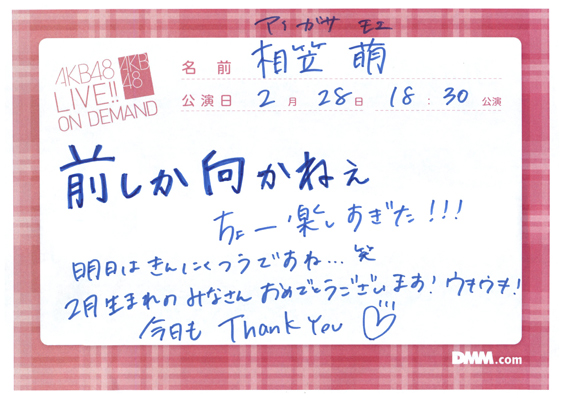 アイガサ モエ
AKB48
LIVE!!
ON DEMAND
AKB
48
名前 相笠 萌
公演日 2月28日 18:30公演
前しか向かねぇ
ちょー楽しすぎた!!!
明日はきんにくつうですね…笑
2月生まれのみなさんおめでとうございます!ウキウキ!
今日も Thank You ♡
DMM.com